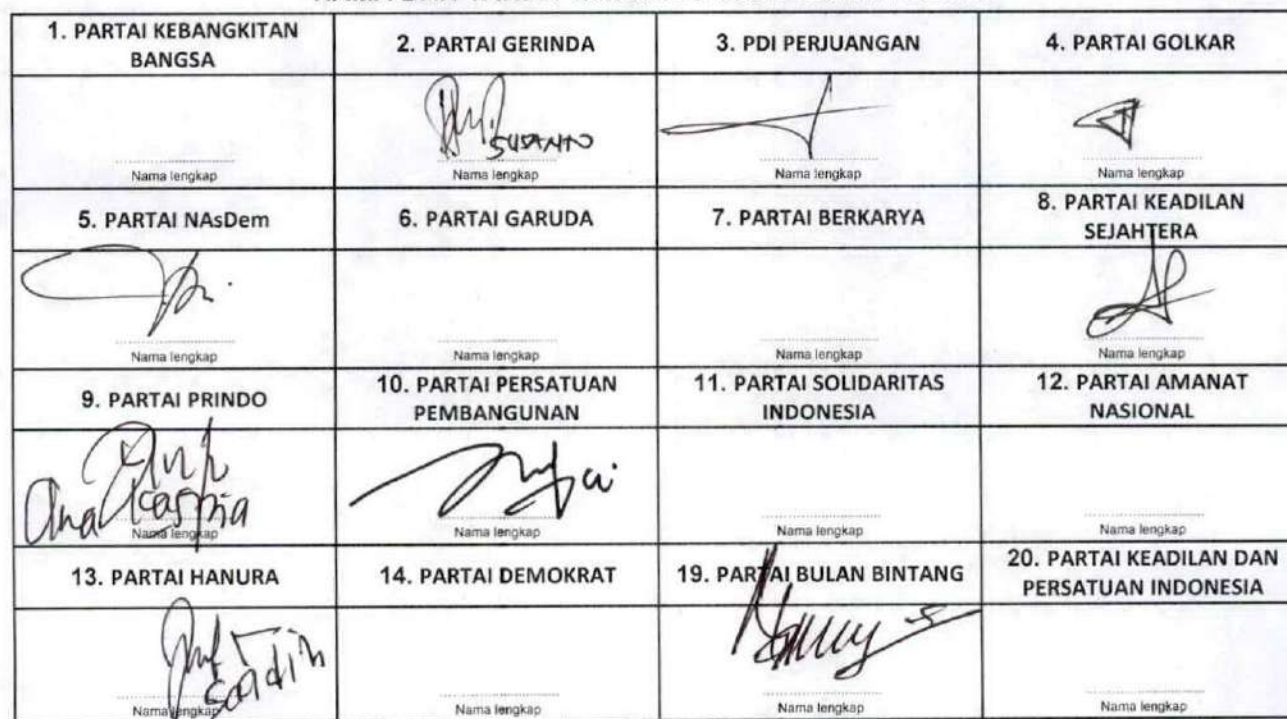 1. PARTAI KEBANGKITAN
BANGSA
2. PARTAI GERINDA
3. PDI PERJUANGAN
4. PARTAI GOLKAR
SUSANTO
Nama lengkap
Nama lengkap
Nama lengkap
Nama lengkap
5. PARTAI NAsDem
6. PARTAI GARUDA
7. PARTAI BERKARYA
8. PARTAI KEADILAN
SEJAHTERA
Nama lengkap
Nama lengkap
Nama lengkap
Nama lengkap
9. PARTAI PRINDO
10. PARTAI PERSATUAN
PEMBANGUNAN
11. PARTAI SOLIDARITAS
INDONESIA
12. PARTAI AMANAT
NASIONAL
Nama lengkap
Nama lengkap
Nama lengkap
Nama lengkap
13. PARTAI HANURA
14. PARTAI DEMOKRAT
19. PARTAI BULAN BINTANG
20. PARTAI KEADILAN DAN
PERSATUAN INDONESIA
Nama lengkap
Nama lengkap
Nama lengkap
Nama lengkap